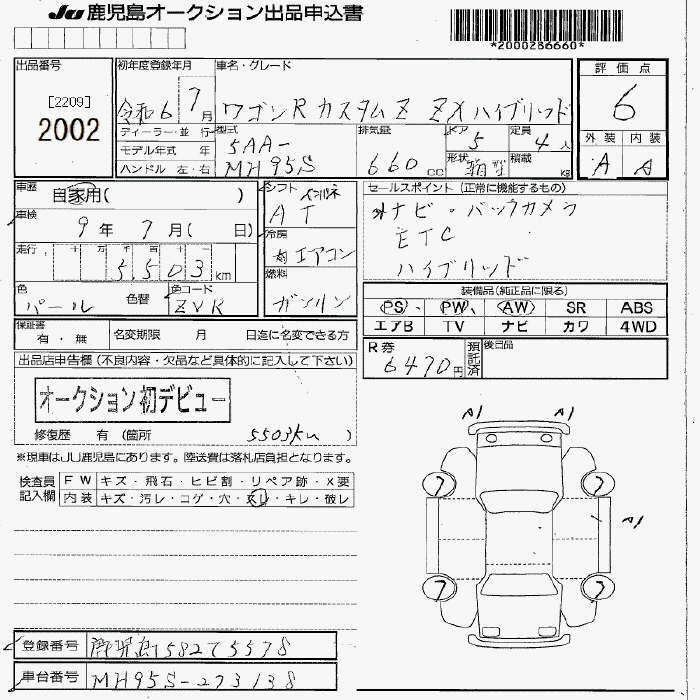 JU 鹿児島オークション出品申込書
*2000286660*
出品番号
[2209]
2002
初年度登録年月
令和6 年 7月
車名・グレード
ワゴンR カスタムZ ZX ハイブリッド
評価点
6
外装 内装
A A
ディーラー・並行
モデル年式 年
ハンドル 左・右
型式
5AA-
MH95S
排気量
660 cc
ドア
5
定員
4人
形状
箱型
積載
kg
車歴
自家用( )
車検
9年 7月( 日)
走行
十 万 千 百 十 一
5,503 km
色
パール
色替
色コード
ZVR
シフト
AT
冷房
エアコン
燃料
ガソリン
セールスポイント(正常に機能するもの)
ナビ・バックカメラ
ETC
ハイブリッド
装備品(純正品に限る)
PS、 PW、 AW SR ABS
エアB TV ナビ カワ 4WD
保証書
有・無
名変期限 月 日迄に名変できる方
R券
6470円
預託済
後日品
出品店申告欄(不良内容・欠品など具体的に記入して下さい)
オークション初デビュー
修復歴 有(箇所 5503km )
※現車はJU鹿児島にあります。陸送費は落札店負担となります。
検査員記入欄
FW キズ・飛石・ヒビ割・リペア跡・X要
内装 キズ・汚レ・コゲ・穴・スレ・キレ・破レ
A1 A1
7 7
A1
7 7
登録番号
鹿児島582て5578
車台番号
MH95S-273138